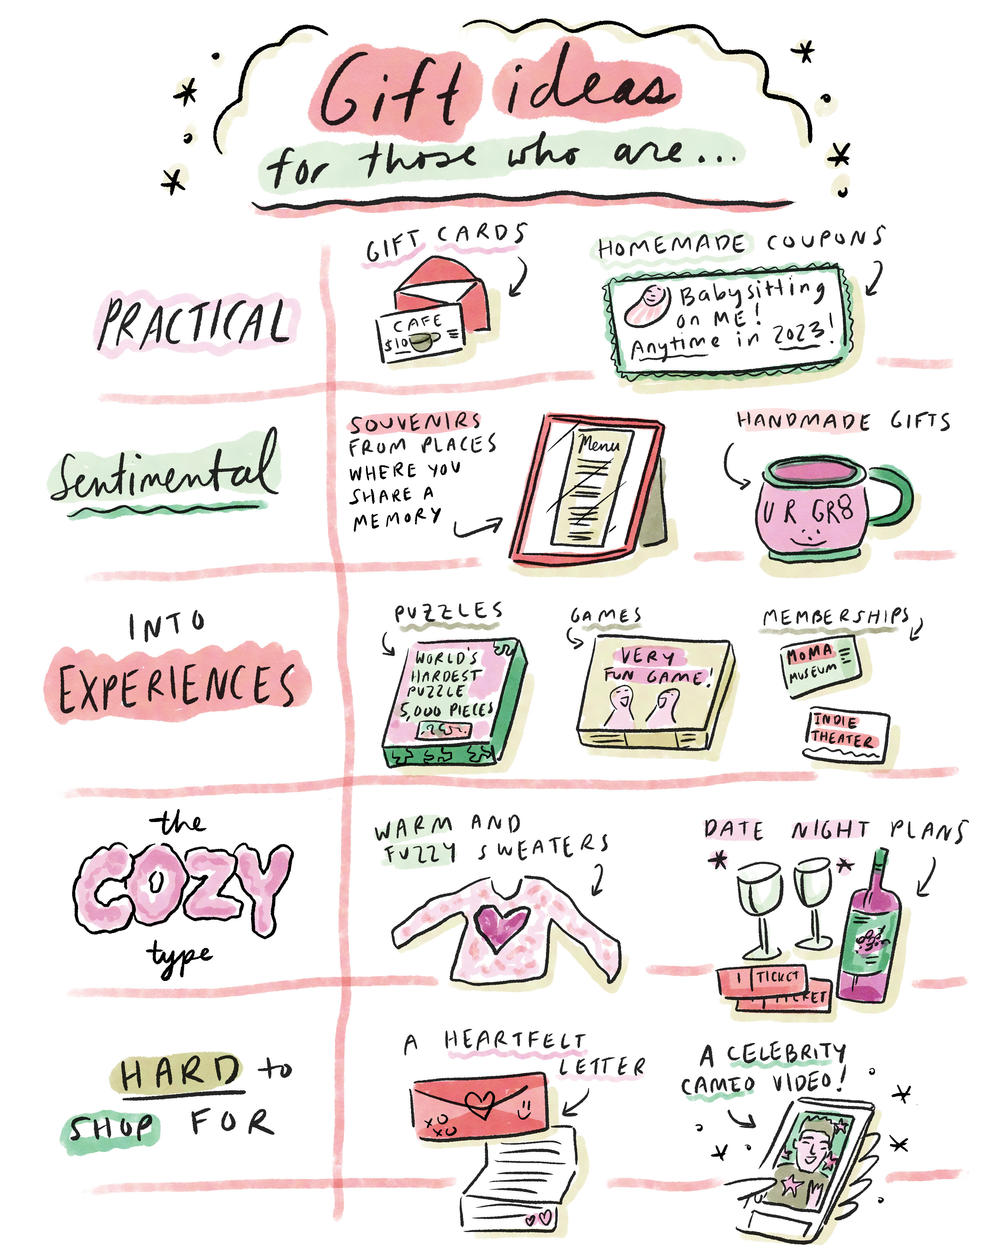 Gift ideas
for those who are...
PRACTICAL
GIFT CARDS
CAFE
$10
HOMEMADE COUPONS
Babysitting
on ME!
Anytime in 2023!
Sentimental
SOUVENIRS
FROM PLACES
WHERE YOU
SHARE A
MEMORY
Menu
HANDMADE GIFTS
U R GR8
INTO
EXPERIENCES
PUZZLES
WORLD'S
HARDEST
PUZZLE
5,000 PIECES
GAMES
VERY
FUN GAME!
MEMBERSHIPS
MOMA
MUSEUM
INDIE
THEATER
the
COZY
type
WARM AND
FUZZY SWEATERS
DATE NIGHT PLANS
1 TICKET
TICKET
HARD to
SHOP FOR
A HEARTFELT
LETTER
XO
XO
A CELEBRITY
CAMEO VIDEO!